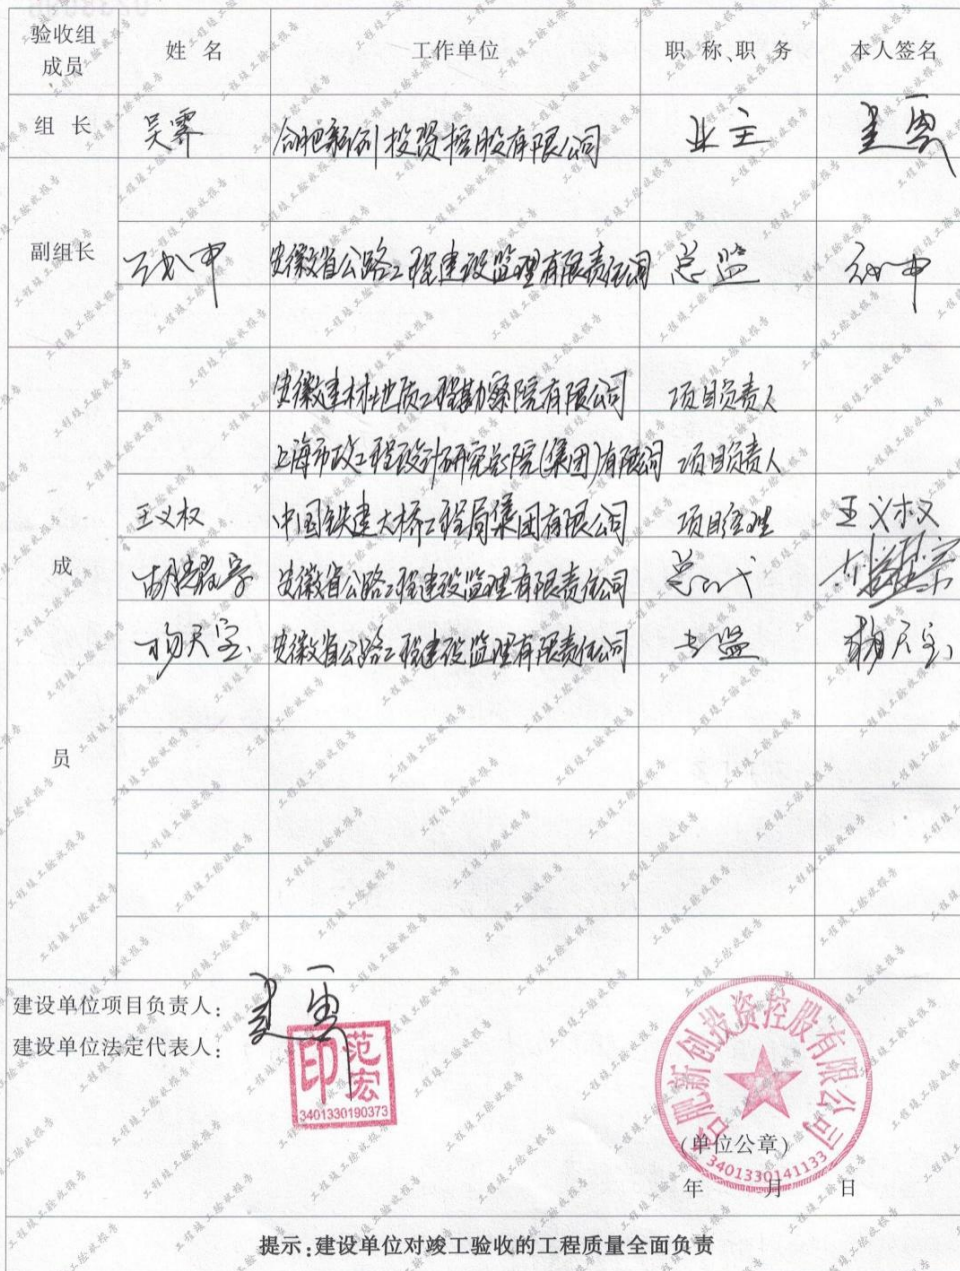 验收组
成员
姓 名
工作单位
职 称、职 务
本人签名
组 长
吴霁
合肥新创投资控股有限公司
业主
副组长
安徽省公路工程建设监理有限责任公司
总监
安徽建材地质工程勘察院有限公司
项目负责人
上海市政工程设计研究总院(集团)有限公司
项目负责人
王义权
中国铁建大桥工程局集团有限公司
项目经理
王义权
成
安徽省公路工程建设监理有限责任公司
总代
杨天宝
安徽省公路工程建设监理有限责任公司
专监
杨天宝
员
建设单位项目负责人：
建设单位法定代表人：
范宏印
3401330190373
合肥新创投资控股有限公司
(单位公章)
3401330141133
年 月 日
提示：建设单位对竣工验收的工程质量全面负责
工程竣工验收报告